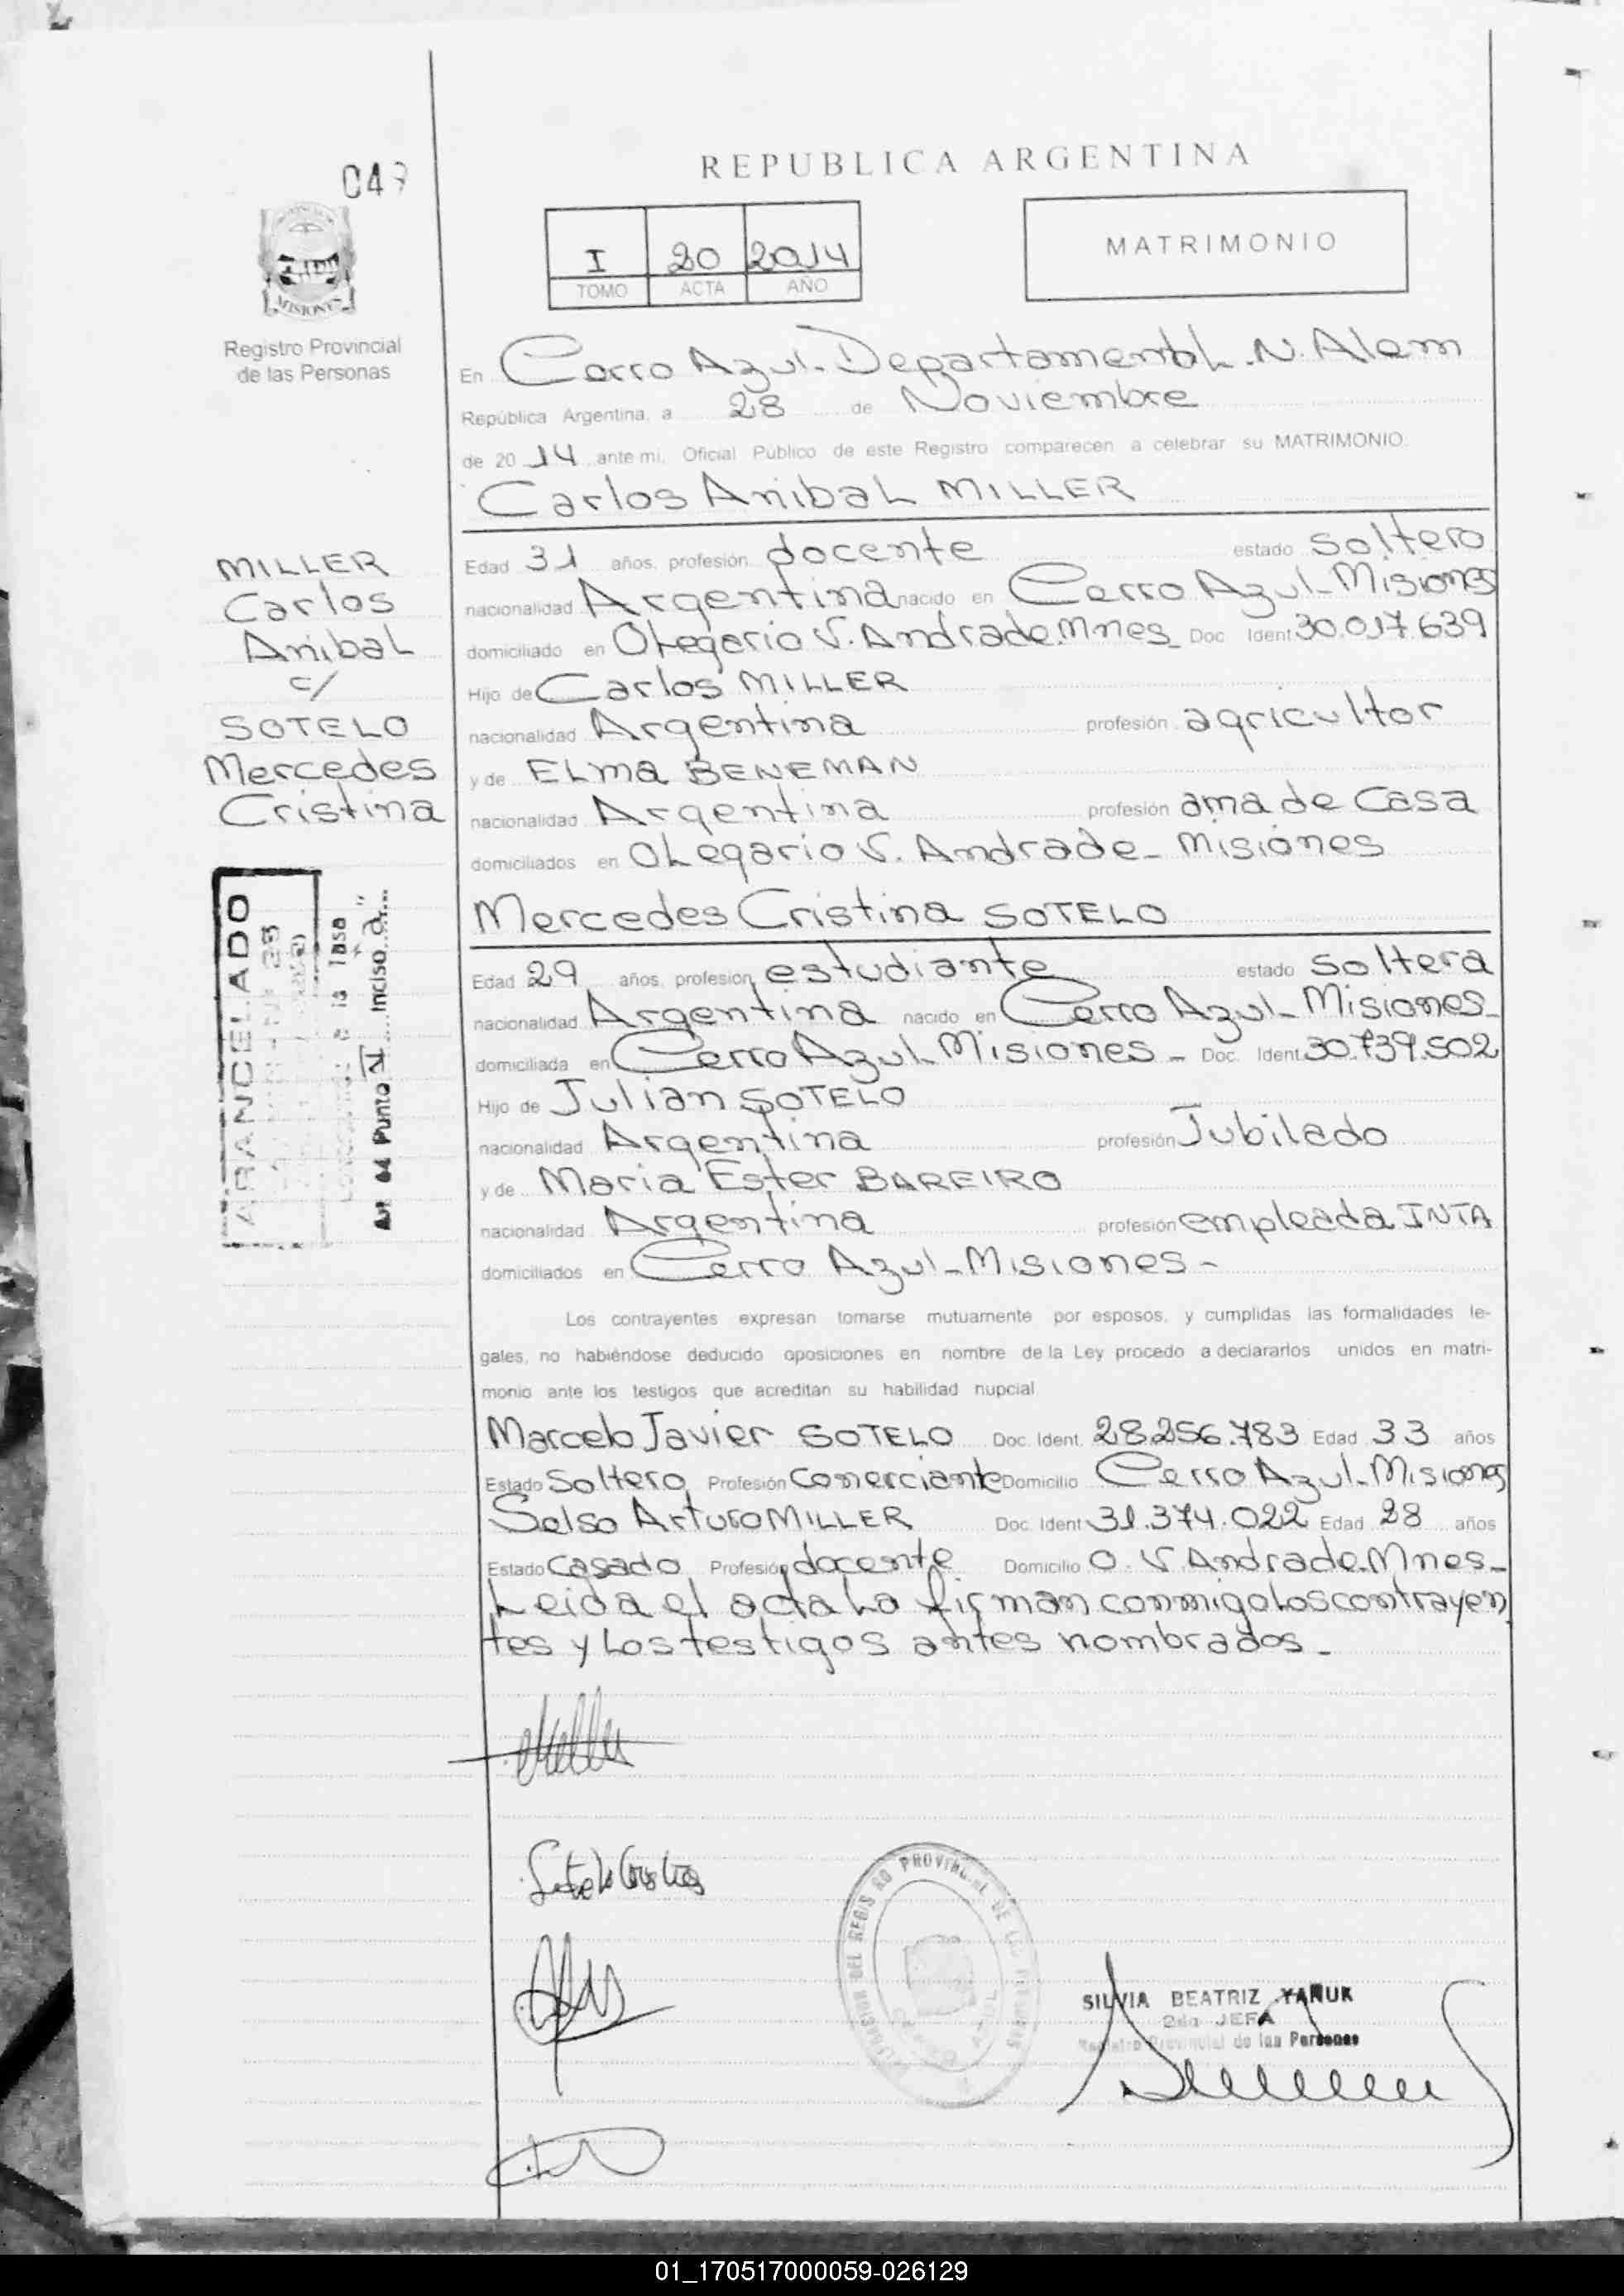 REPUBLICA ARGENTINA
I 20 2014
TOMO ACTA AÑO
MATRIMONIO
MISIONES
Registro Provincial
de las Personas
En Cerro Azul - Departamento L. N. Alem
República Argentina, a 28 de Noviembre
de 2014 ante mi, Oficial Público de este Registro comparecen a celebrar su MATRIMONIO.
Carlos Anibal MILLER
Edad 31 años, profesión docente estado soltero
nacionalidad Argentina nacido en Cerro Azul - Misiones
domiciliado en Olegario V. Andrade. Mnes - Doc Ident 30.017.639
Hijo de Carlos MILLER
nacionalidad Argentina profesión agricultor
y de Elma BENEMAN
nacionalidad Argentina profesión ama de casa
domiciliados en Olegario V. Andrade - Misiones
Mercedes Cristina SOTELO
Edad 29 años, profesión estudiante estado soltera
nacionalidad Argentina nacido en Cerro Azul - Misiones -
domiciliada en Cerro Azul - Misiones - Doc. Ident 30.739.502
Hijo de Julian SOTELO
nacionalidad Argentina profesión Jubilado
y de Maria Ester BAREIRO
nacionalidad Argentina profesión empleada INTA
domiciliados en Cerro Azul - Misiones -
Los contrayentes expresan tomarse mutuamente por esposos, y cumplidas las formalidades le-
gales, no habiéndose deducido oposiciones en nombre de la Ley procedo a declararlos unidos en matri-
monio ante los testigos que acreditan su habilidad nupcial
Marcelo Javier SOTELO Doc. Ident. 28.256.783 Edad 33 años
Estado Soltero Profesión Comerciante Domicilio Cerro Azul - Misiones
Selso Arturo MILLER Doc. Ident 31.374.022 Edad 28 años
Estado Casado Profesión docente Domicilio O. V. Andrade. Mnes -
Leida el acta la firman conmigo los contrayen
tes y los testigos antes nombrados -
MILLER
Carlos
Anibal
c/
SOTELO
Mercedes
Cristina
ARANCELADO
a la Tasa
Art 64 Punto IV Inciso a "
SILVIA BEATRIZ YAÑUK
2da JEFA
Registro Provincial de las Personas
01_170517000059-026129